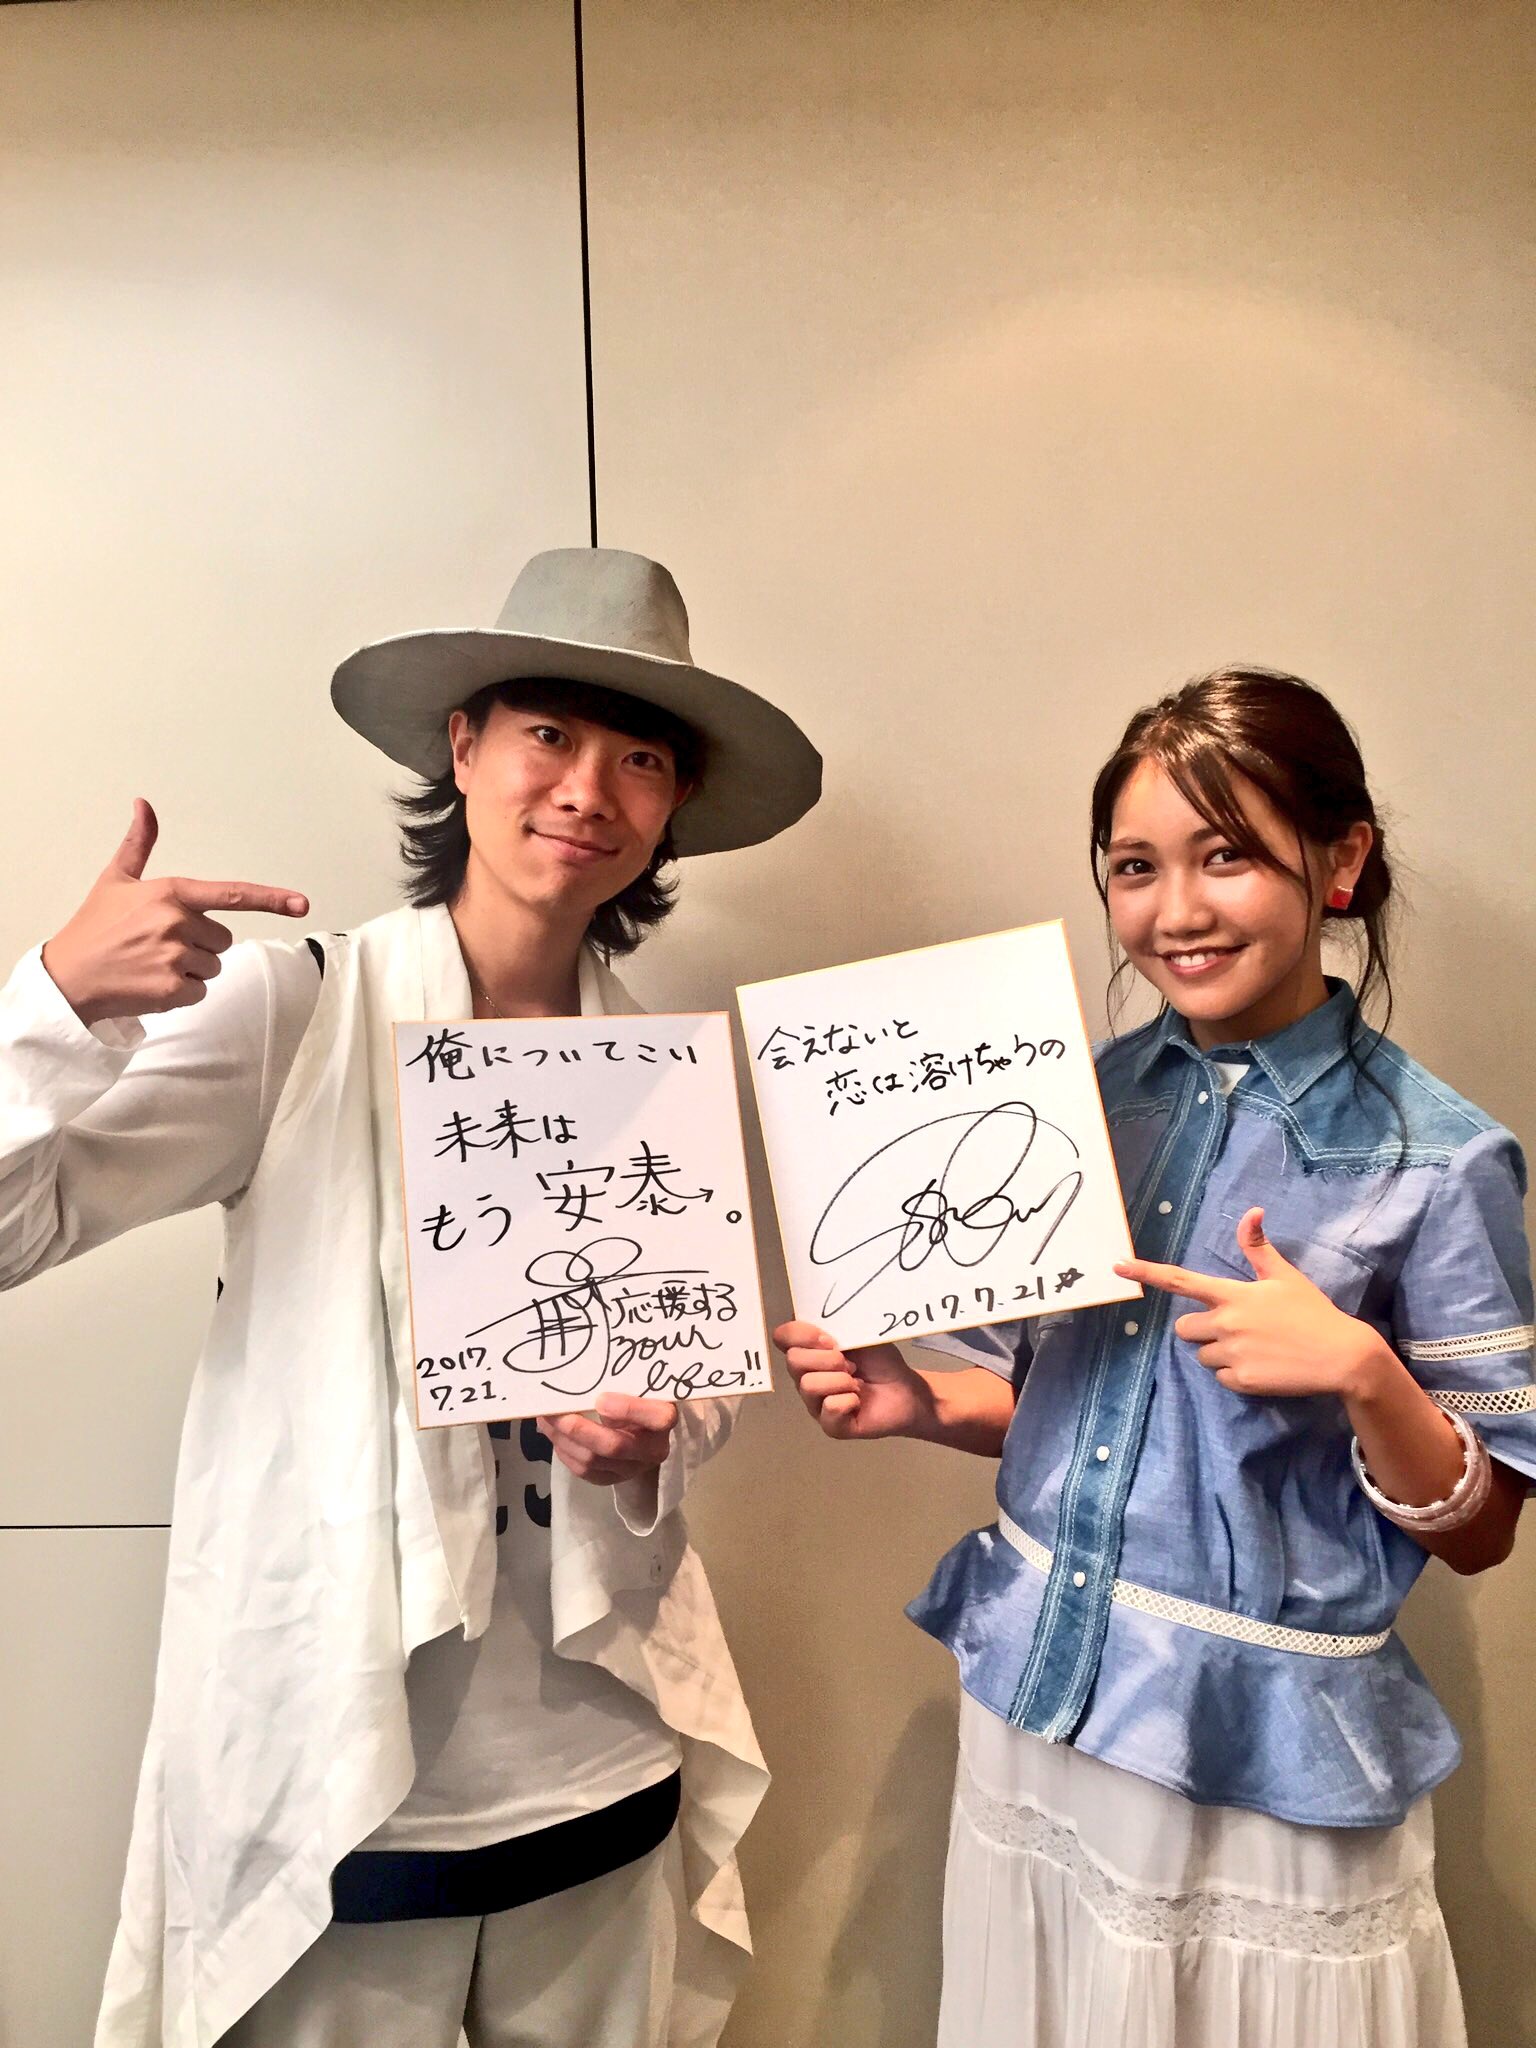 俺についてこい
未来は
もう安泰。
応援する
your
life!!
2017.
7.21.
会えないと
恋は溶けちゃうの
2017.7.21